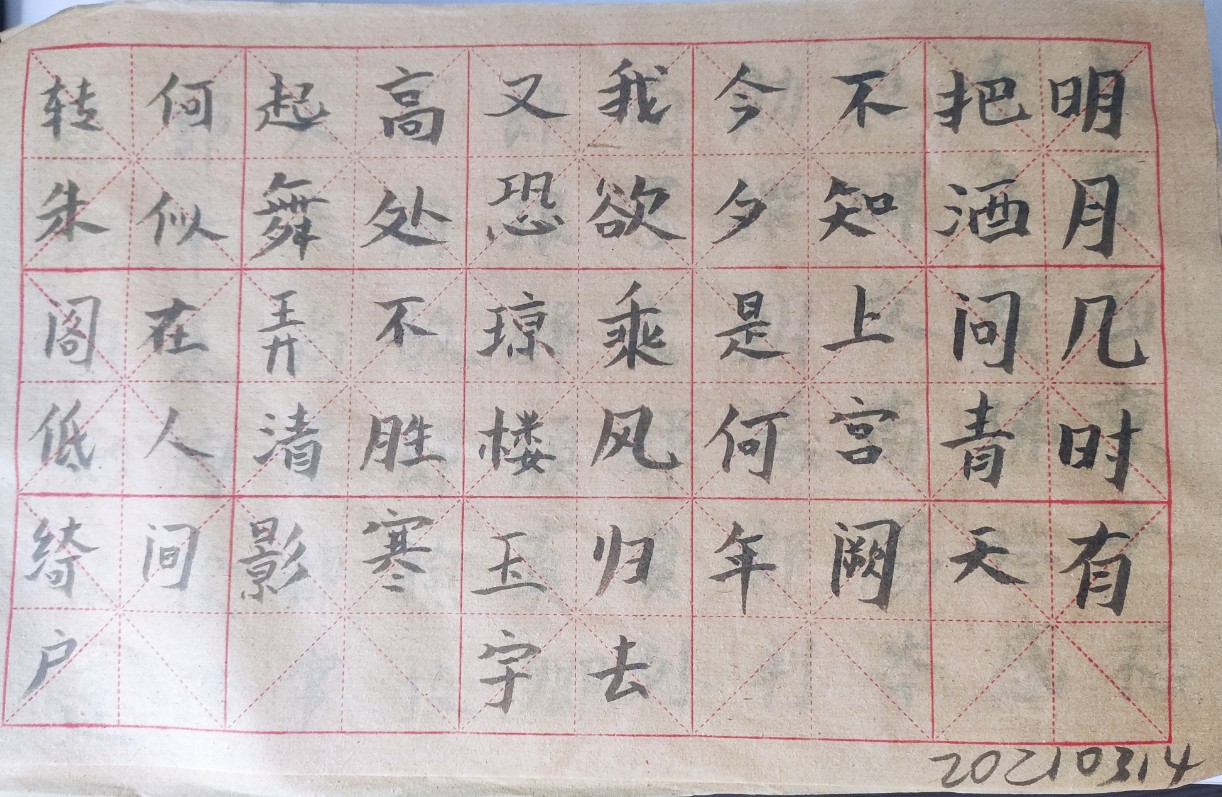 明月几时有
把酒问青天
不知上宫阙
今夕是何年
我欲乘风归去
又恐琼楼玉宇
高处不胜寒
起舞弄清影
何似在人间
转朱阁低绮户
20210314